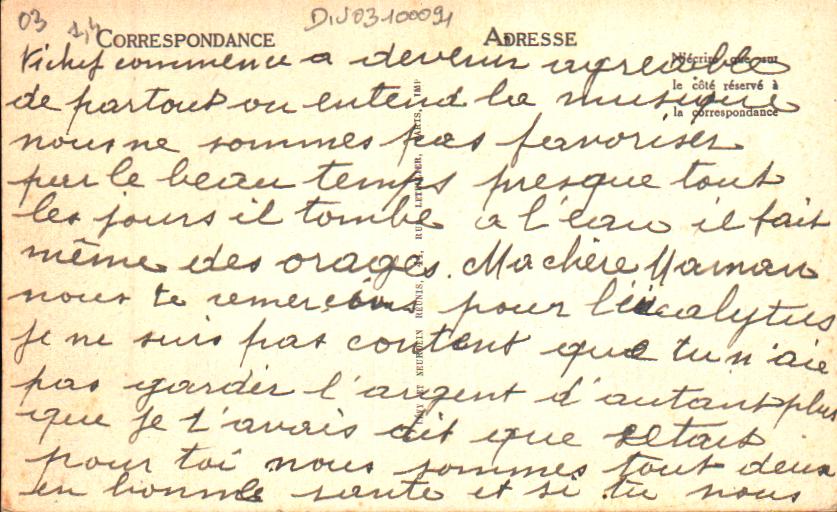 03 DIV03100091
CORRESPONDANCE ADRESSE
N'écrire que sur
le côté réservé à
la correspondance
Vichy commence a devenir agreable
de partout on entend la musique
nous ne sommes pas favoriser
par le beau temps presque tout
les jours il tombe a l'eau il fait
même des orages. Ma chère Maman
nous te remercions pour l'eucalytus
je ne suis pas content que tu n'aie
pas garder l'argent d'autant plus
que je t'avais dit que cetait
pour toi nous sommes tout deux
en bonne sante et si tu nous
LEVY ET NEURDEIN RÉUNIS, 44, RUE LETELLIER, PARIS, IMP